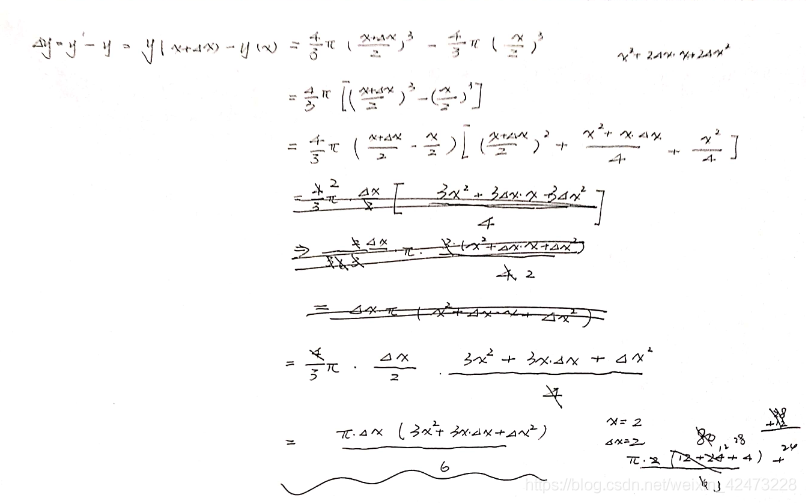 Δy = y' - y = y(x+Δx) - y(x) = 4/3 π ((x+Δx)/2)³ - 4/3 π (x/2)³
x² + 2Δx·x + 2Δx²
= 4/3 π [((x+Δx)/2)³ - (x/2)³]
= 4/3 π ((x+Δx)/2 - x/2) [((x+Δx)/2)² + (x² + x·Δx)/4 + x²/4]
= 4/3 π · Δx/2 [(3x² + 3Δx·x 3Δx²)/4]
= Δx·π (x² + Δx·x + Δx²)
= 4/3 π · Δx/2 · (3x² + 3x·Δx + Δx²)/4
= π·Δx (3x² + 3x·Δx + Δx²)/6
x = 2
Δx = 2
π·2 (12 + 24 + 4)
https://blog.csdn.net/weixin_42473228